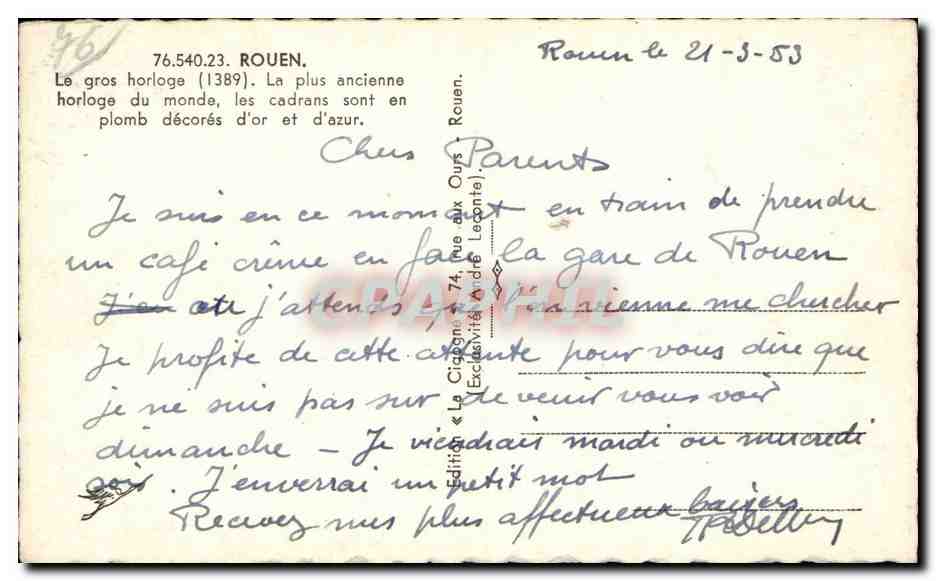 76
76.540.23. ROUEN.
Le gros horloge (1389). La plus ancienne
horloge du monde, les cadrans sont en
plomb décorés d'or et d'azur.
Rouen le 21-3-53
Chers Parents
Je suis en ce moment en train de prendre
un café crême en face la gare de Rouen
J'en et j'attends que l'on vienne me chercher
Je profite de cette attente pour vous dire que
je ne suis pas sur de venir vous voir
dimanche – Je viendrais mardi ou mercredi
soir. J'enverrai un petit mot
Recevez mes plus affectueux baisers
Edition « La Cigogne » 74, rue aux Ours - Rouen.
(Exclusivité André Leconte).
CPAPHIL